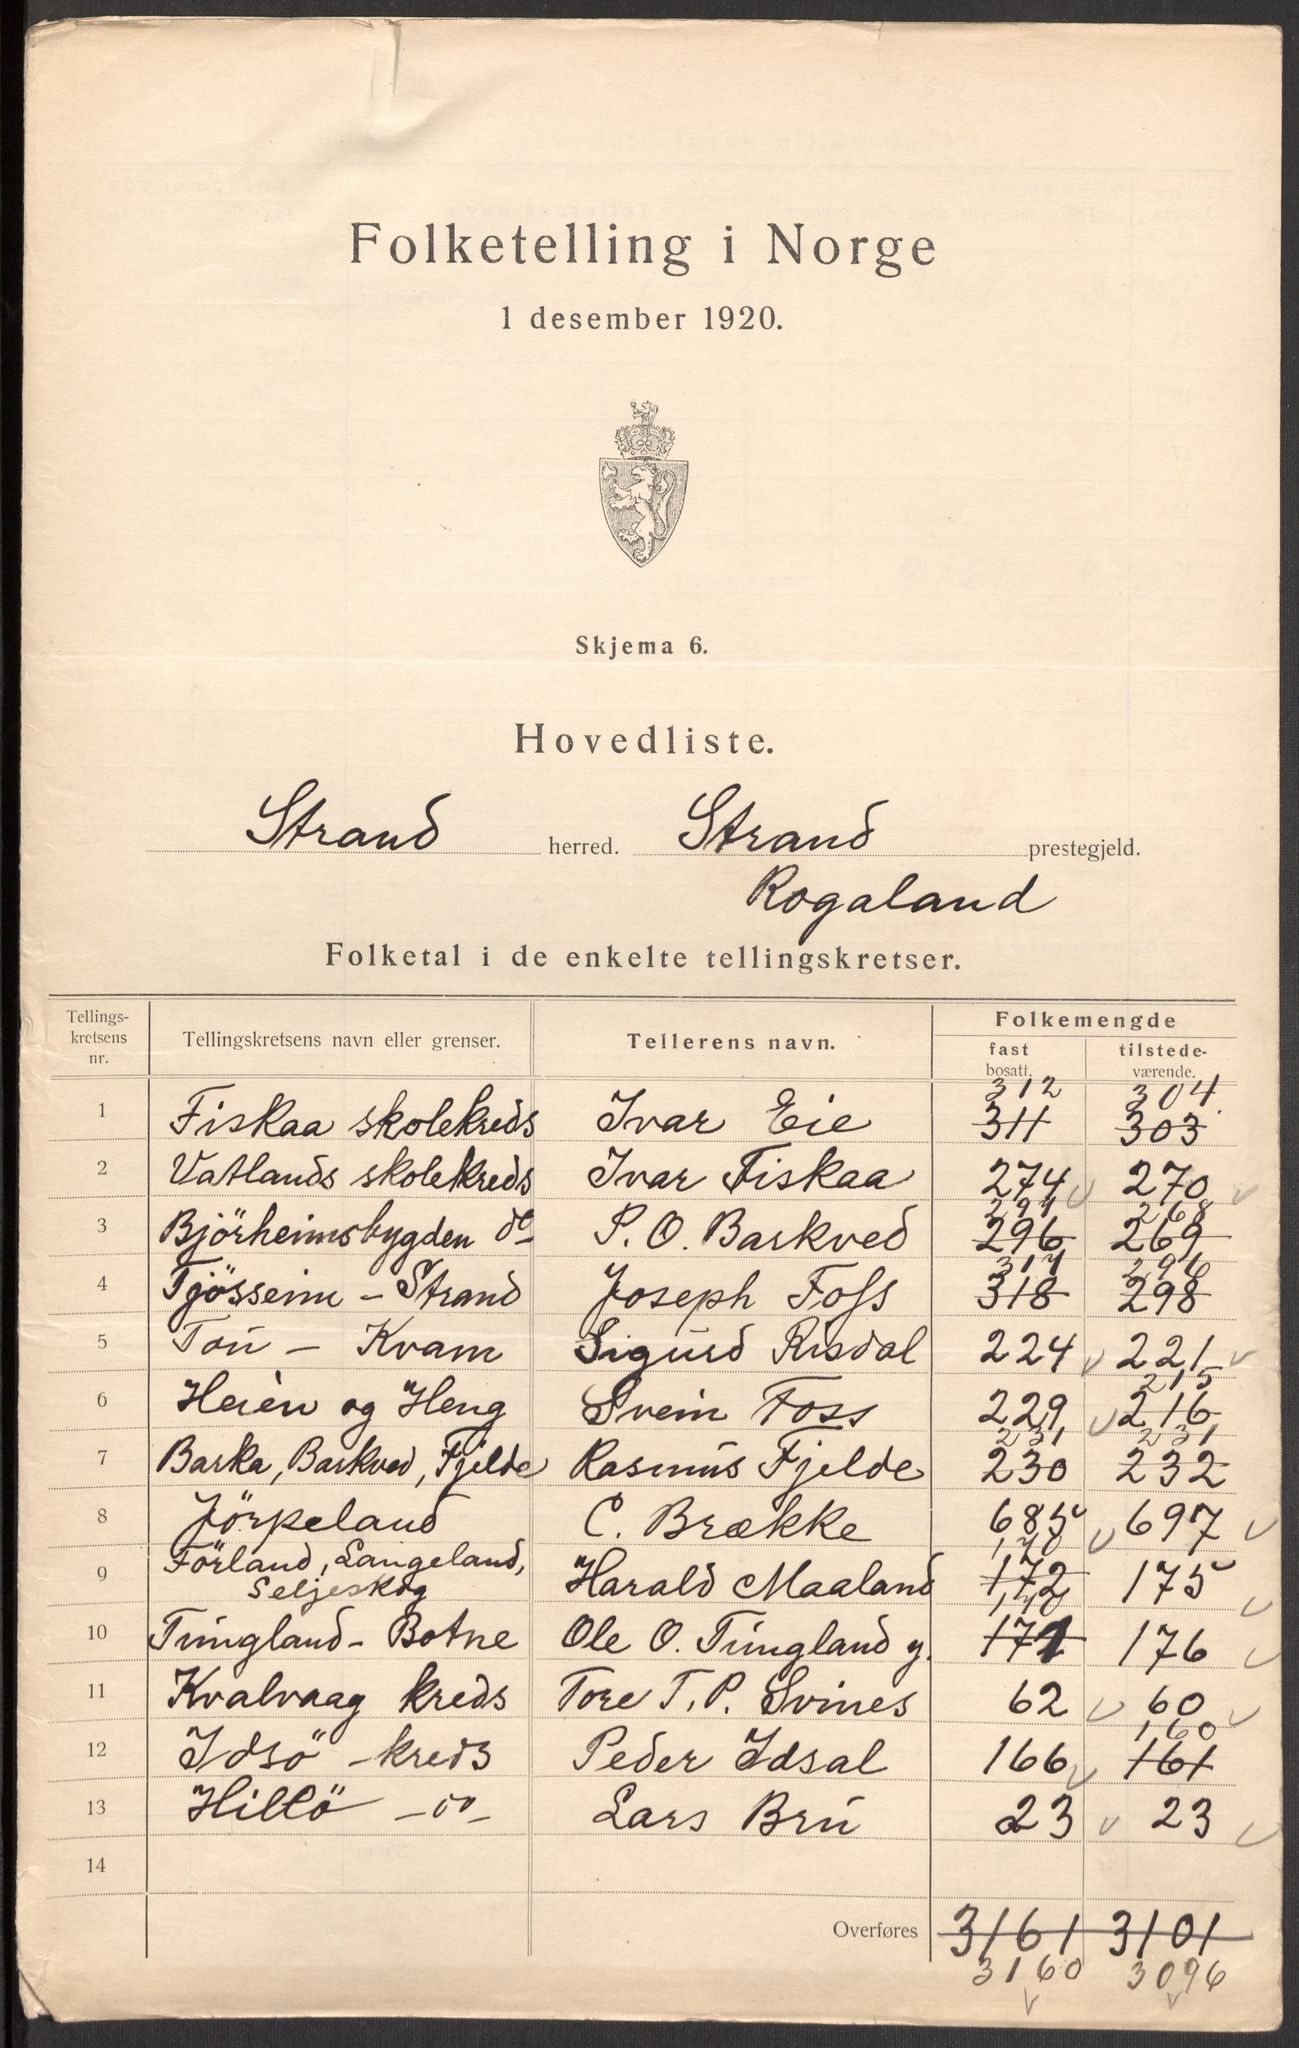 Folketelling i Norge
1 desember 1920.
Skjema 6.
Hovedliste.
Strand herred. Strand prestegjeld.
Rogaland
Folketal i de enkelte tellingskretser.
Tellings-
kretsens
nr.
Tellingskretsens navn eller grenser.
Tellerens navn.
Folkemengde
fast
bosatt.
tilstede-
værende.
312 304
1 Fiskaa skolekreds Ivar Eie 311 303
2 Vatlands skolekreds Ivar Fiskaa 274 270
297 268
3 Bjørheimsbygden do P. O. Barkved 296 269
317 296
4 Tjøsseim - Strand Joseph Foss 318 298
5 Tou - Kvam Sigurd Risdal 224 221
215
6 Heien og Heng Svein Foss 229 216
231 231
7 Barka, Barkved, Fjelde Rasmus Fjelde 230 232
8 Jörpeland C. Brække 685 697
170
9 Förland, Langeland, Harald Maaland 172 175
Seljeskog
170
10 Tungland - Botne Ole O. Tungland y. 171 176
11 Kvalvaag kreds Tore T. P. Svines 62 60
160
12 Idsö - kreds Peder Idsal 166 161
13 Hillö - do - Lars Bru 23 23
14
Overføres 3161 3101
3160 3096